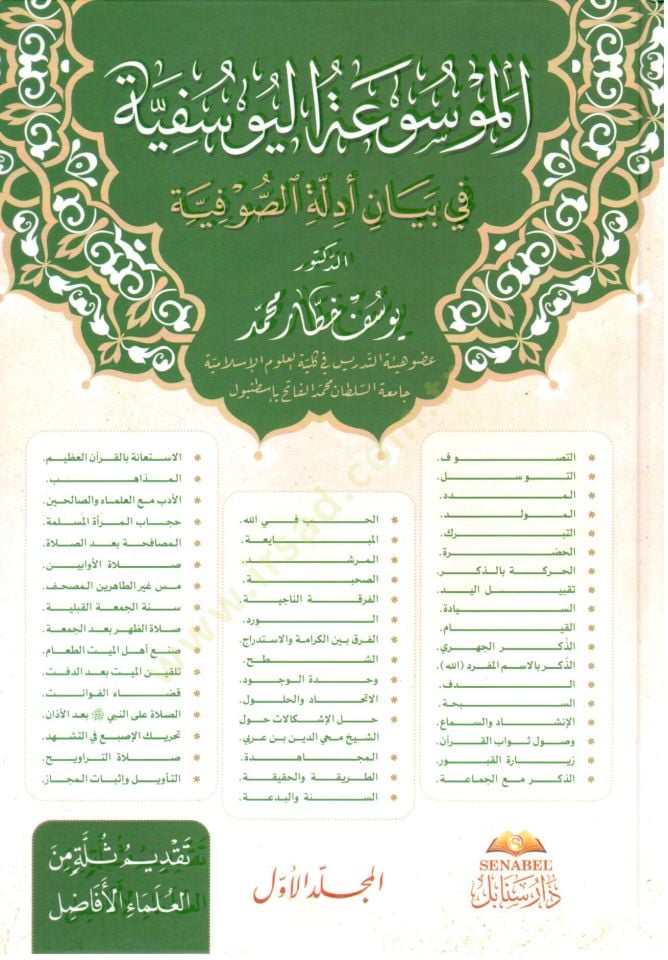 الموسوعة اليوسفية
في بيان أدلة الصوفية
الدكتور
يوسف خطار محمد
عضو هيئة التدريس في كلية العلوم الإسلامية
جامعة السلطان محمد الفاتح بإسطنبول
* التصوف.
* التوسل.
* المدد.
* المولد.
* التبرك.
* الحضرة.
* الحركة بالذكر.
* تقبيل اليد.
* السيادة.
* القيام.
* الذكر الجهري.
* الذكر بالاسم المفرد (الله).
* الدف.
* السبحة.
* الإنشاد والسماع.
* وصول ثواب القرآن.
* زيارة القبور.
* الذكر مع الجماعة.
* الحب في الله.
* المبايعة.
* المرشد.
* الصحبة.
* الفرقة الناجية
* الورد.
* الفرق بين الكرامة والاستدراج.
* الشطح.
* وحدة الوجود.
* الاتحاد والحلول.
* حل الإشكالات حول
الشيخ محي الدين بن عربي.
* المجاهدة.
* الطريقة والحقيقة.
* السنة والبدعة.
* الاستعانة بالقرآن العظيم.
* المذاهب.
* الأدب مع العلماء والصالحين.
* حجاب المرأة المسلمة.
* المصافحة بعد الصلاة.
* صلاة الأوابين.
* مس غير الطاهرين المصحف.
* سنة الجمعة القبلية.
* صلاة الظهر بعد الجمعة.
* صنع أهل الميت الطعام.
* تلقين الميت بعد الدفن.
* قضاء الفوائت.
* الصلاة على النبي ﷺ بعد الأذان.
* تحريك الإصبع في التشهد.
* صلاة التراويح.
* التأويل وإثبات المجاز.
SENABEL
دار سنابل
المجلد الأول
تقديم ثلة من
العلماء الأفاضل
www.irsad.com.tr